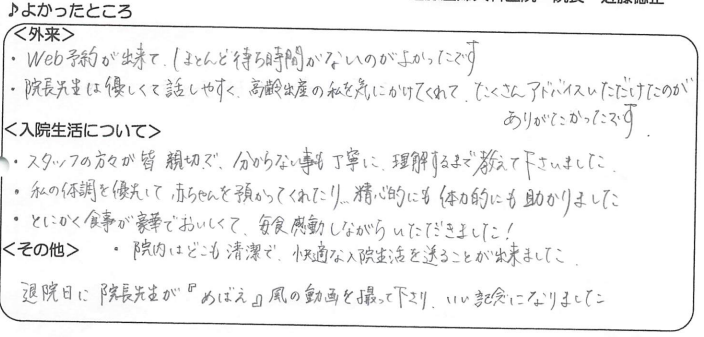 ♪よかったところ
<外来>
・Web予約が出来て、ほとんど待ち時間がないのがよかったです
・院長先生は優しくて話しやすく、高齢出産の私を気にかけてくれて、たくさんアドバイスいただけたのが
ありがたかったです。
<入院生活について>
・スタッフの方々が皆親切で、分からない事も丁寧に、理解するまで教えて下さいました。
・私の体調を優先して、赤ちゃんを預かってくれたり…精神的にも体力的にも助かりました
・とにかく食事が豪華でおいしくて、毎食感動しながらいただきました!
<その他> ・院内はどこも清潔で、快適な入院生活を送ることが出来ました。
退院日に院長先生が『めばえ』風の動画を撮って下さり、いい記念になりました